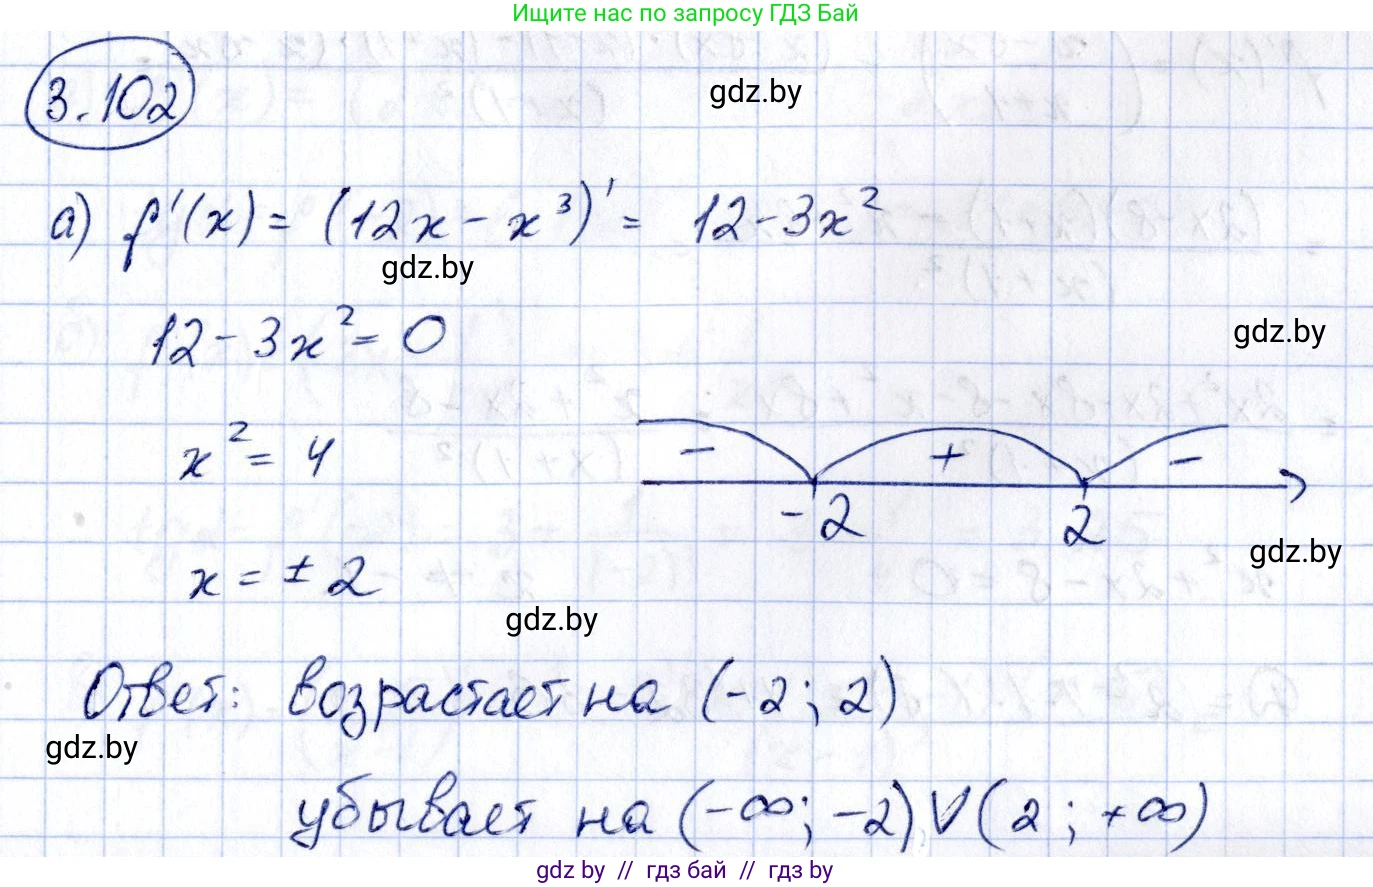 Ищите нас по запросу ГДЗ Бай
3.102
gdz.by
а) f'(x) = (12x - x³)' = 12 - 3x²
gdz.by
12 - 3x² = 0
gdz.by
x² = 4
- + -
-2 2
gdz.by
x = ± 2
gdz.by
Ответ: возрастает на (-2; 2)
gdz.by
убывает на (-∞; -2) V (2; +∞)
gdz.by // гдз бай // гдз by